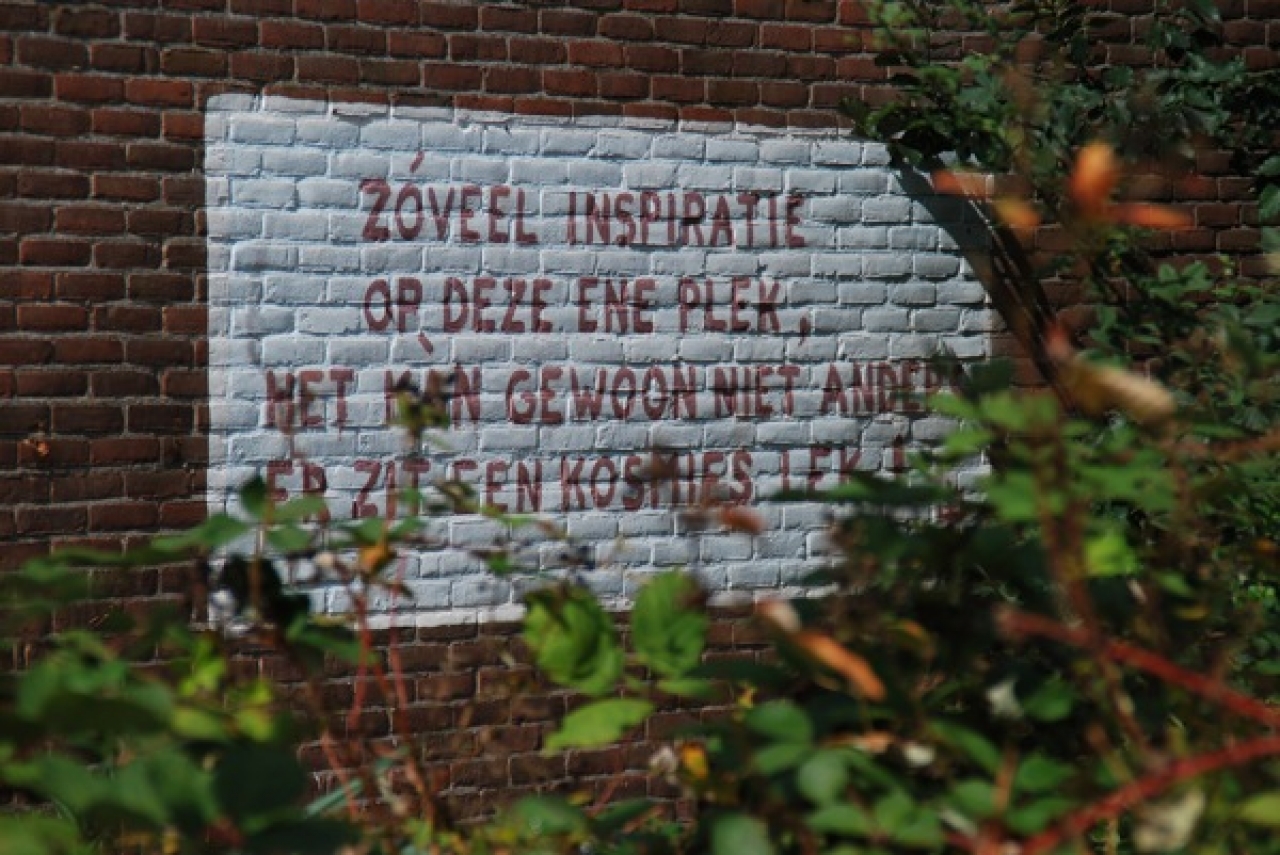 ZÓVEEL INSPIRATIE
OP DEZE ENE PLEK,
HET KÀN GEWOON NIET ANDERS
ER ZIT EEN KOSMIES LEK !